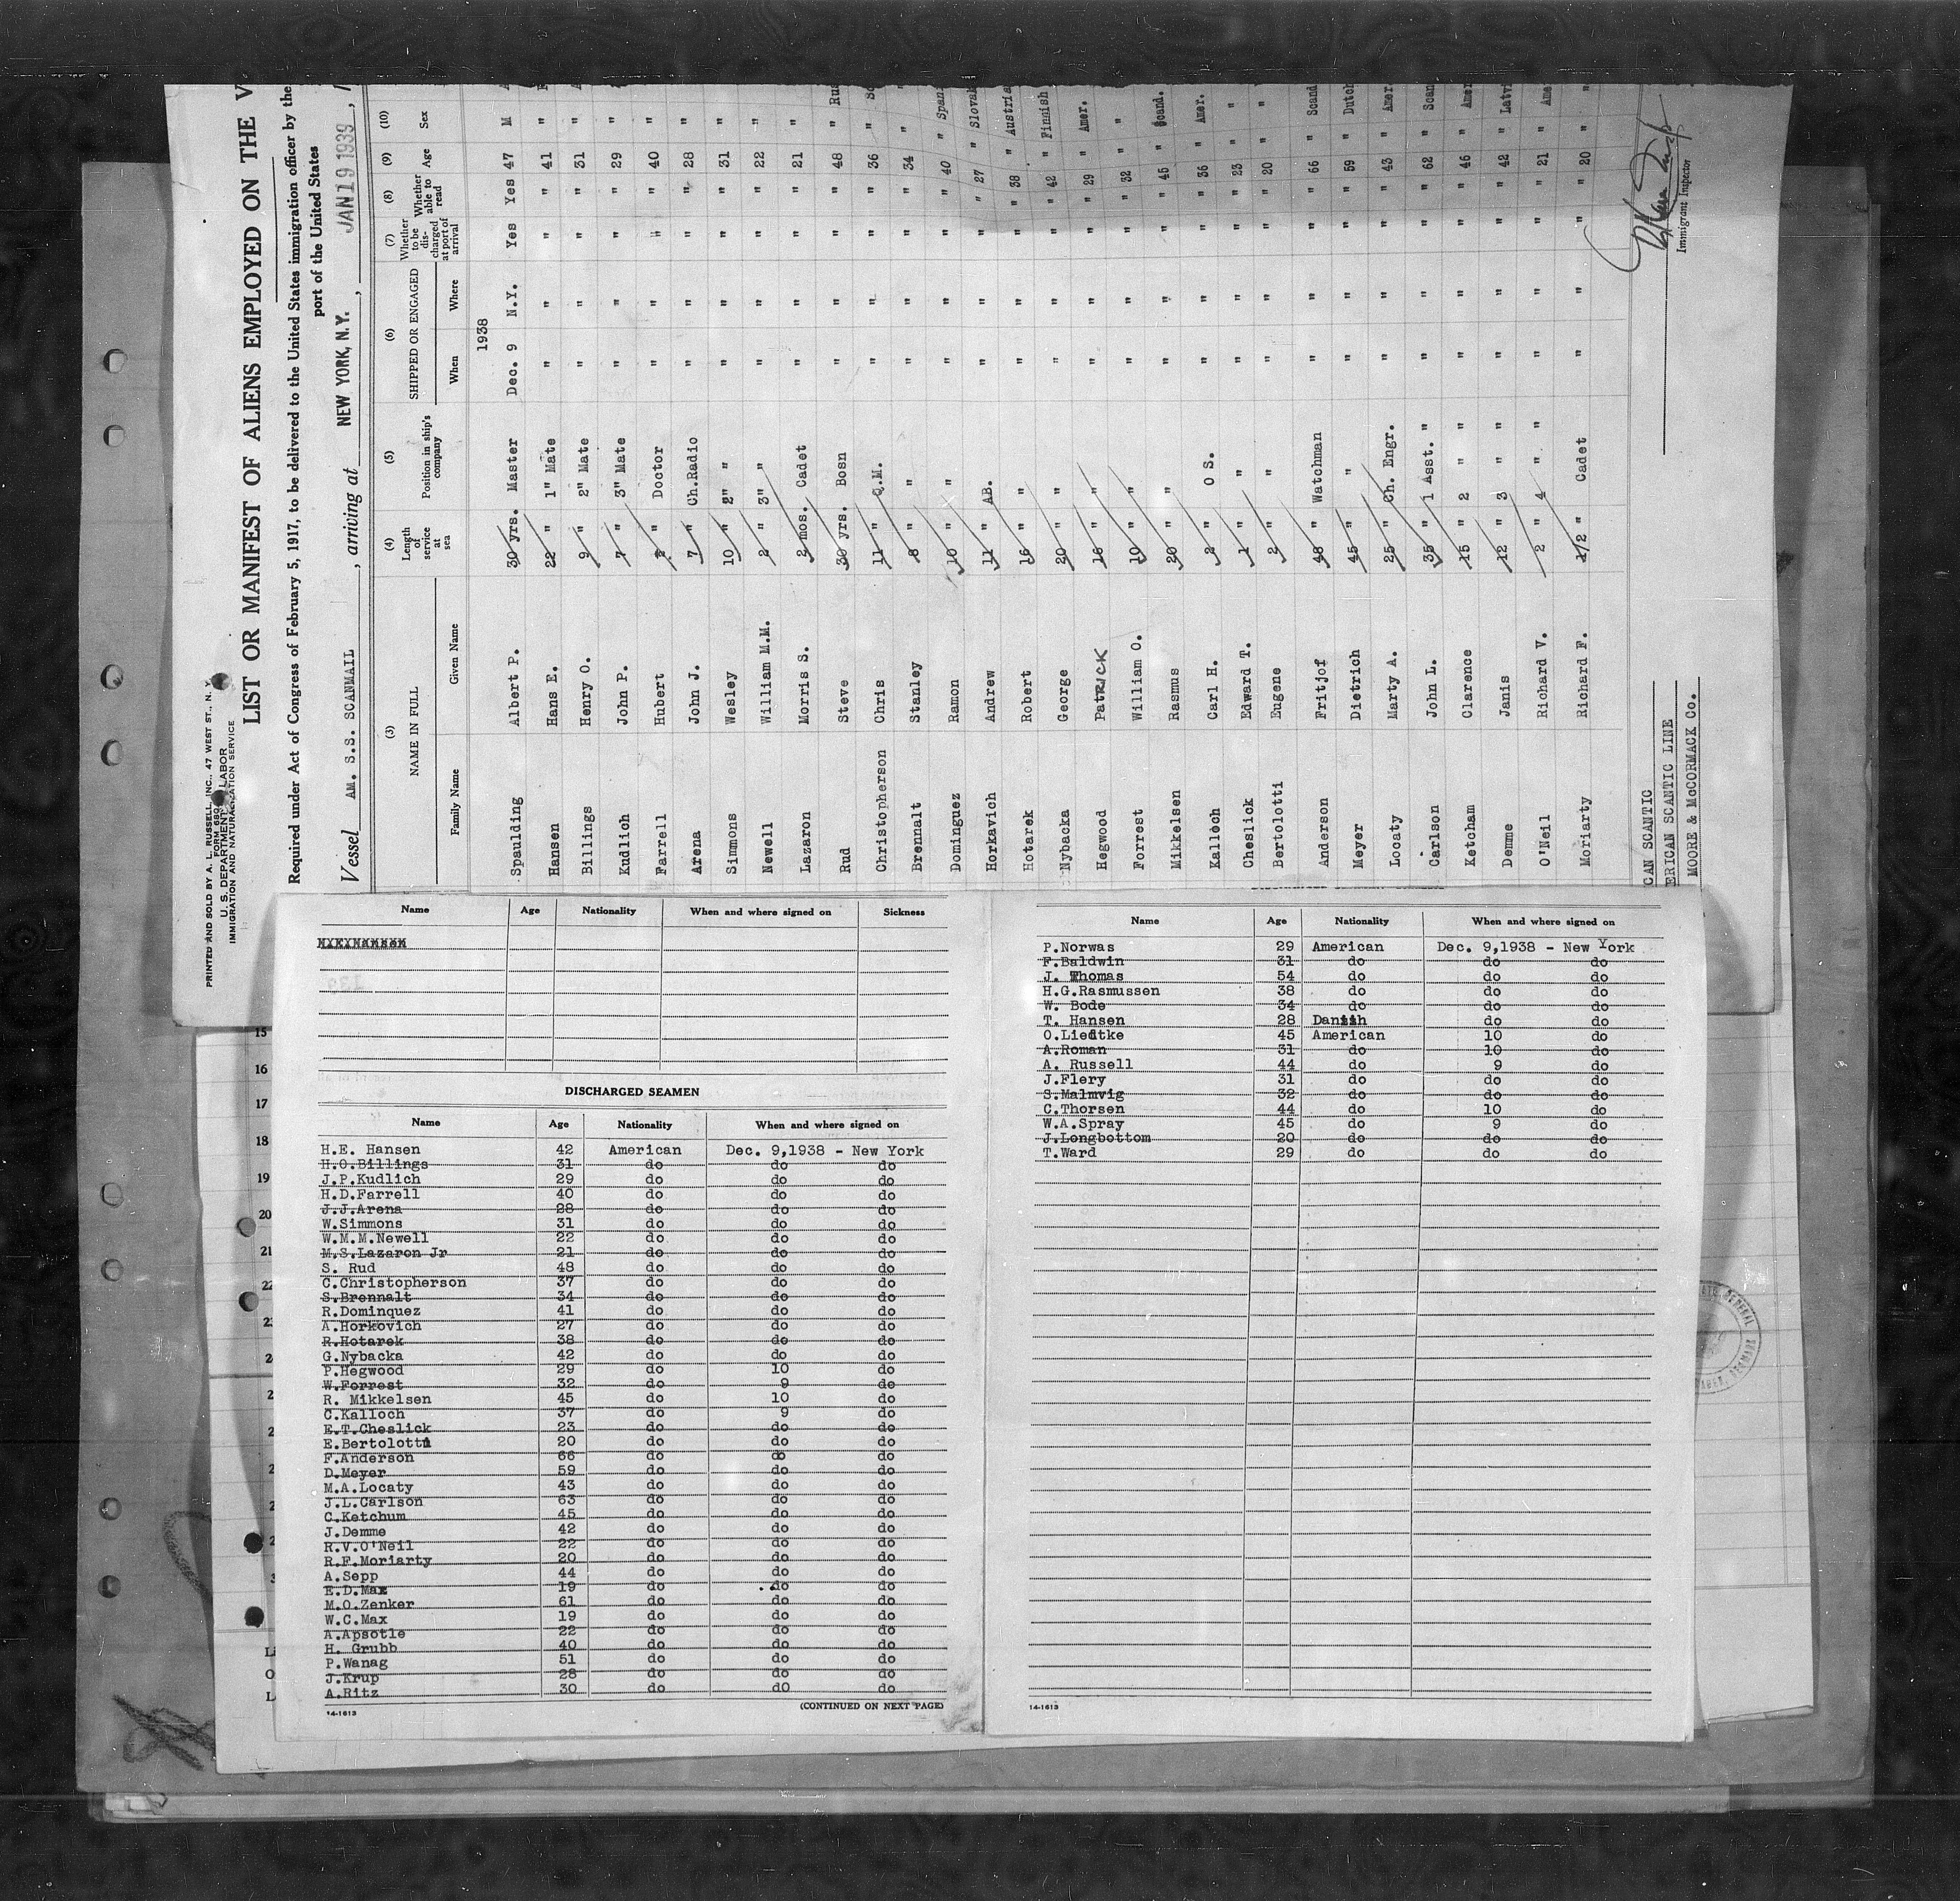 PRINTED AND SOLD BY A. L. RUSSELL, INC., 47 WEST ST., N. Y.
FORM 680
U. S. DEPARTMENT LABOR
IMMIGRATION AND NATURALIZATION SERVICE
LIST OR MANIFEST OF ALIENS EMPLOYED ON THE V
Required under Act of Congress of February 5, 1917, to be delivered to the United States immigration officer by the
port of the United States
Vessel AM. S.S. SCANMAIL, arriving at NEW YORK, N.Y., JAN 19 1939,
(3) (4) (5) (6) (7) (8) (9) (10)
NAME IN FULL Length of service at sea Position in ship's company SHIPPED OR ENGAGED Whether to be discharged at port of arrival Whether able to read Age Sex
Family Name Given Name When Where
1938
Spaulding Albert P. 30 yrs. Master Dec. 9 N.Y. Yes Yes 47 M
Hansen Hans E. 22 " 1" Mate " " " " 41 "
Billings Henry O. 9 " 2" Mate " " " " 31 "
Kudlich John P. 7 " 3" Mate " " " " 29 "
Farrell Hubert " Doctor " " " " 40 "
Arena John J. 7 " Ch.Radio " " " " 28 "
Simmons Wesley 10 " 2" " " " " " 31 "
Newell William M.M. 2 " 3" " " " " " 22 "
Lazaron Morris S. 2 mos. Cadet " " " " 21 "
Rud Steve 30 yrs. Bosn " " " " 48 "
Christopherson Chris 11 " Q.M. " " " " 36 "
Brennalt Stanley 8 " " " " " " 34 "
Dominguez Ramon 10 " " " " " " 40 " Span
Horkavich Andrew 11 " AB. " " " " 27 " Slovak
Hotarek Robert 16 " " " " " " 38 " Austria
Nybacka George 20 " " " " " " 42 " Finnish
Hegwood PATRICK 16 " " " " " " 29 " Amer.
Forrest William O. 10 " " " " " " 32 " "
Mikkelsen Rasmus 20 " " " " " " 45 " Scand.
Kalloch Carl H. 2 " O S. " " " " 36 " Amer.
Cheslick Edward T. 1 " " " " " " 23 " "
Bertolotti Eugene 2 " " " " " " 20 " "
Anderson Fritjof 48 " Watchman " " " " 66 " Scand
Meyer Dietrich 45 " " " " " " 59 " Dutch
Locaty Marty A. 25 " Ch. Engr. " " " " 43 " Amer.
Carlson John L. 35 " 1 Asst. " " " " " 62 " Scan
Ketcham Clarence 15 " 2 " " " " " 46 " Amer
Demme Janis 12 " 3 " " " " " 42 " Latvi
O'Neil Richard V. 2 " 4 " " " " " 21 " Ame
Moriarty Richard F. 1/2 " Cadet " " " " 20 " "
Immigrant Inspector
CAN SCANTIC
ERICAN SCANTIC LINE
MOORE & McCORMACK Co.
Name Age Nationality When and where signed on Sickness
DISCHARGED SEAMEN
Name Age Nationality When and where signed on
H.E. Hansen 42 American Dec. 9,1938 - New York
H.O.Billings 31 do do do
J.P.Kudlich 29 do do do
H.D.Farrell 40 do do do
J.J.Arena 28 do do do
W.Simmons 31 do do do
W.M.M.Newell 22 do do do
M.S.Lazaron Jr 21 do do do
S. Rud 48 do do do
C.Christopherson 37 do do do
S.Brennalt 34 do do do
R.Dominquez 41 do do do
A.Horkovich 27 do do do
R.Hotarek 38 do do do
G.Nybacka 42 do do do
P.Hegwood 29 do 10 do
W.Forrest 32 do 9 do
R. Mikkelsen 45 do 10 do
C.Kalloch 37 do 9 do
E.T.Cheslick 23 do do do
E.Bertolotti 20 do do do
F.Anderson 66 do do do
D.Meyer 59 do do do
M.A.Locaty 43 do do do
J.L.Carlson 63 do do do
C.Ketchum 45 do do do
J.Demme 42 do do do
R.V.O'Neil 22 do do do
R.F.Moriarty 20 do do do
A.Sepp 44 do do do
E.D.Max 19 do do do
M.O.Zenker 61 do do do
W.C.Max 19 do do do
A.Apsotle 22 do do do
H. Grubb 40 do do do
P.Wanag 51 do do do
J.Krup 28 do do do
A.Ritz 30 do dO do
(CONTINUED ON NEXT PAGE)
14-1613
Name Age Nationality When and where signed on
P.Norwas 29 American Dec. 9,1938 - New York
F.Baldwin 31 do do do
J. Thomas 54 do do do
H.G.Rasmussen 38 do do do
W. Bode 34 do do do
T. Hansen 28 Danish do do
O.Liedtke 45 American 10 do
A.Roman 31 do 10 do
A. Russell 44 do 9 do
J.Flery 31 do do do
S.Malmvig 32 do do do
C.Thorsen 44 do 10 do
W.A.Spray 45 do 9 do
J.Longbottom 20 do do do
T.Ward 29 do do do
14-1613
15
16
17
18
19
20
21
22